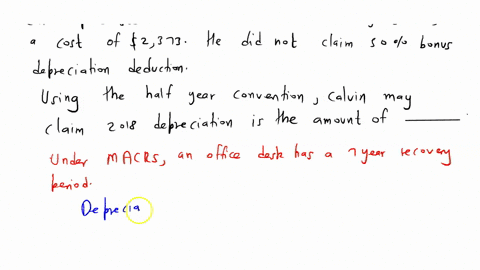 a cost of $2,373. He did not claim 50% bonus
depreciation deduction.
Using the half year convention, Calvin may
claim 2018 depreciation is the amount of ______
Under MACRS, an office desk has a 7 year recovery
period.
Deprecia